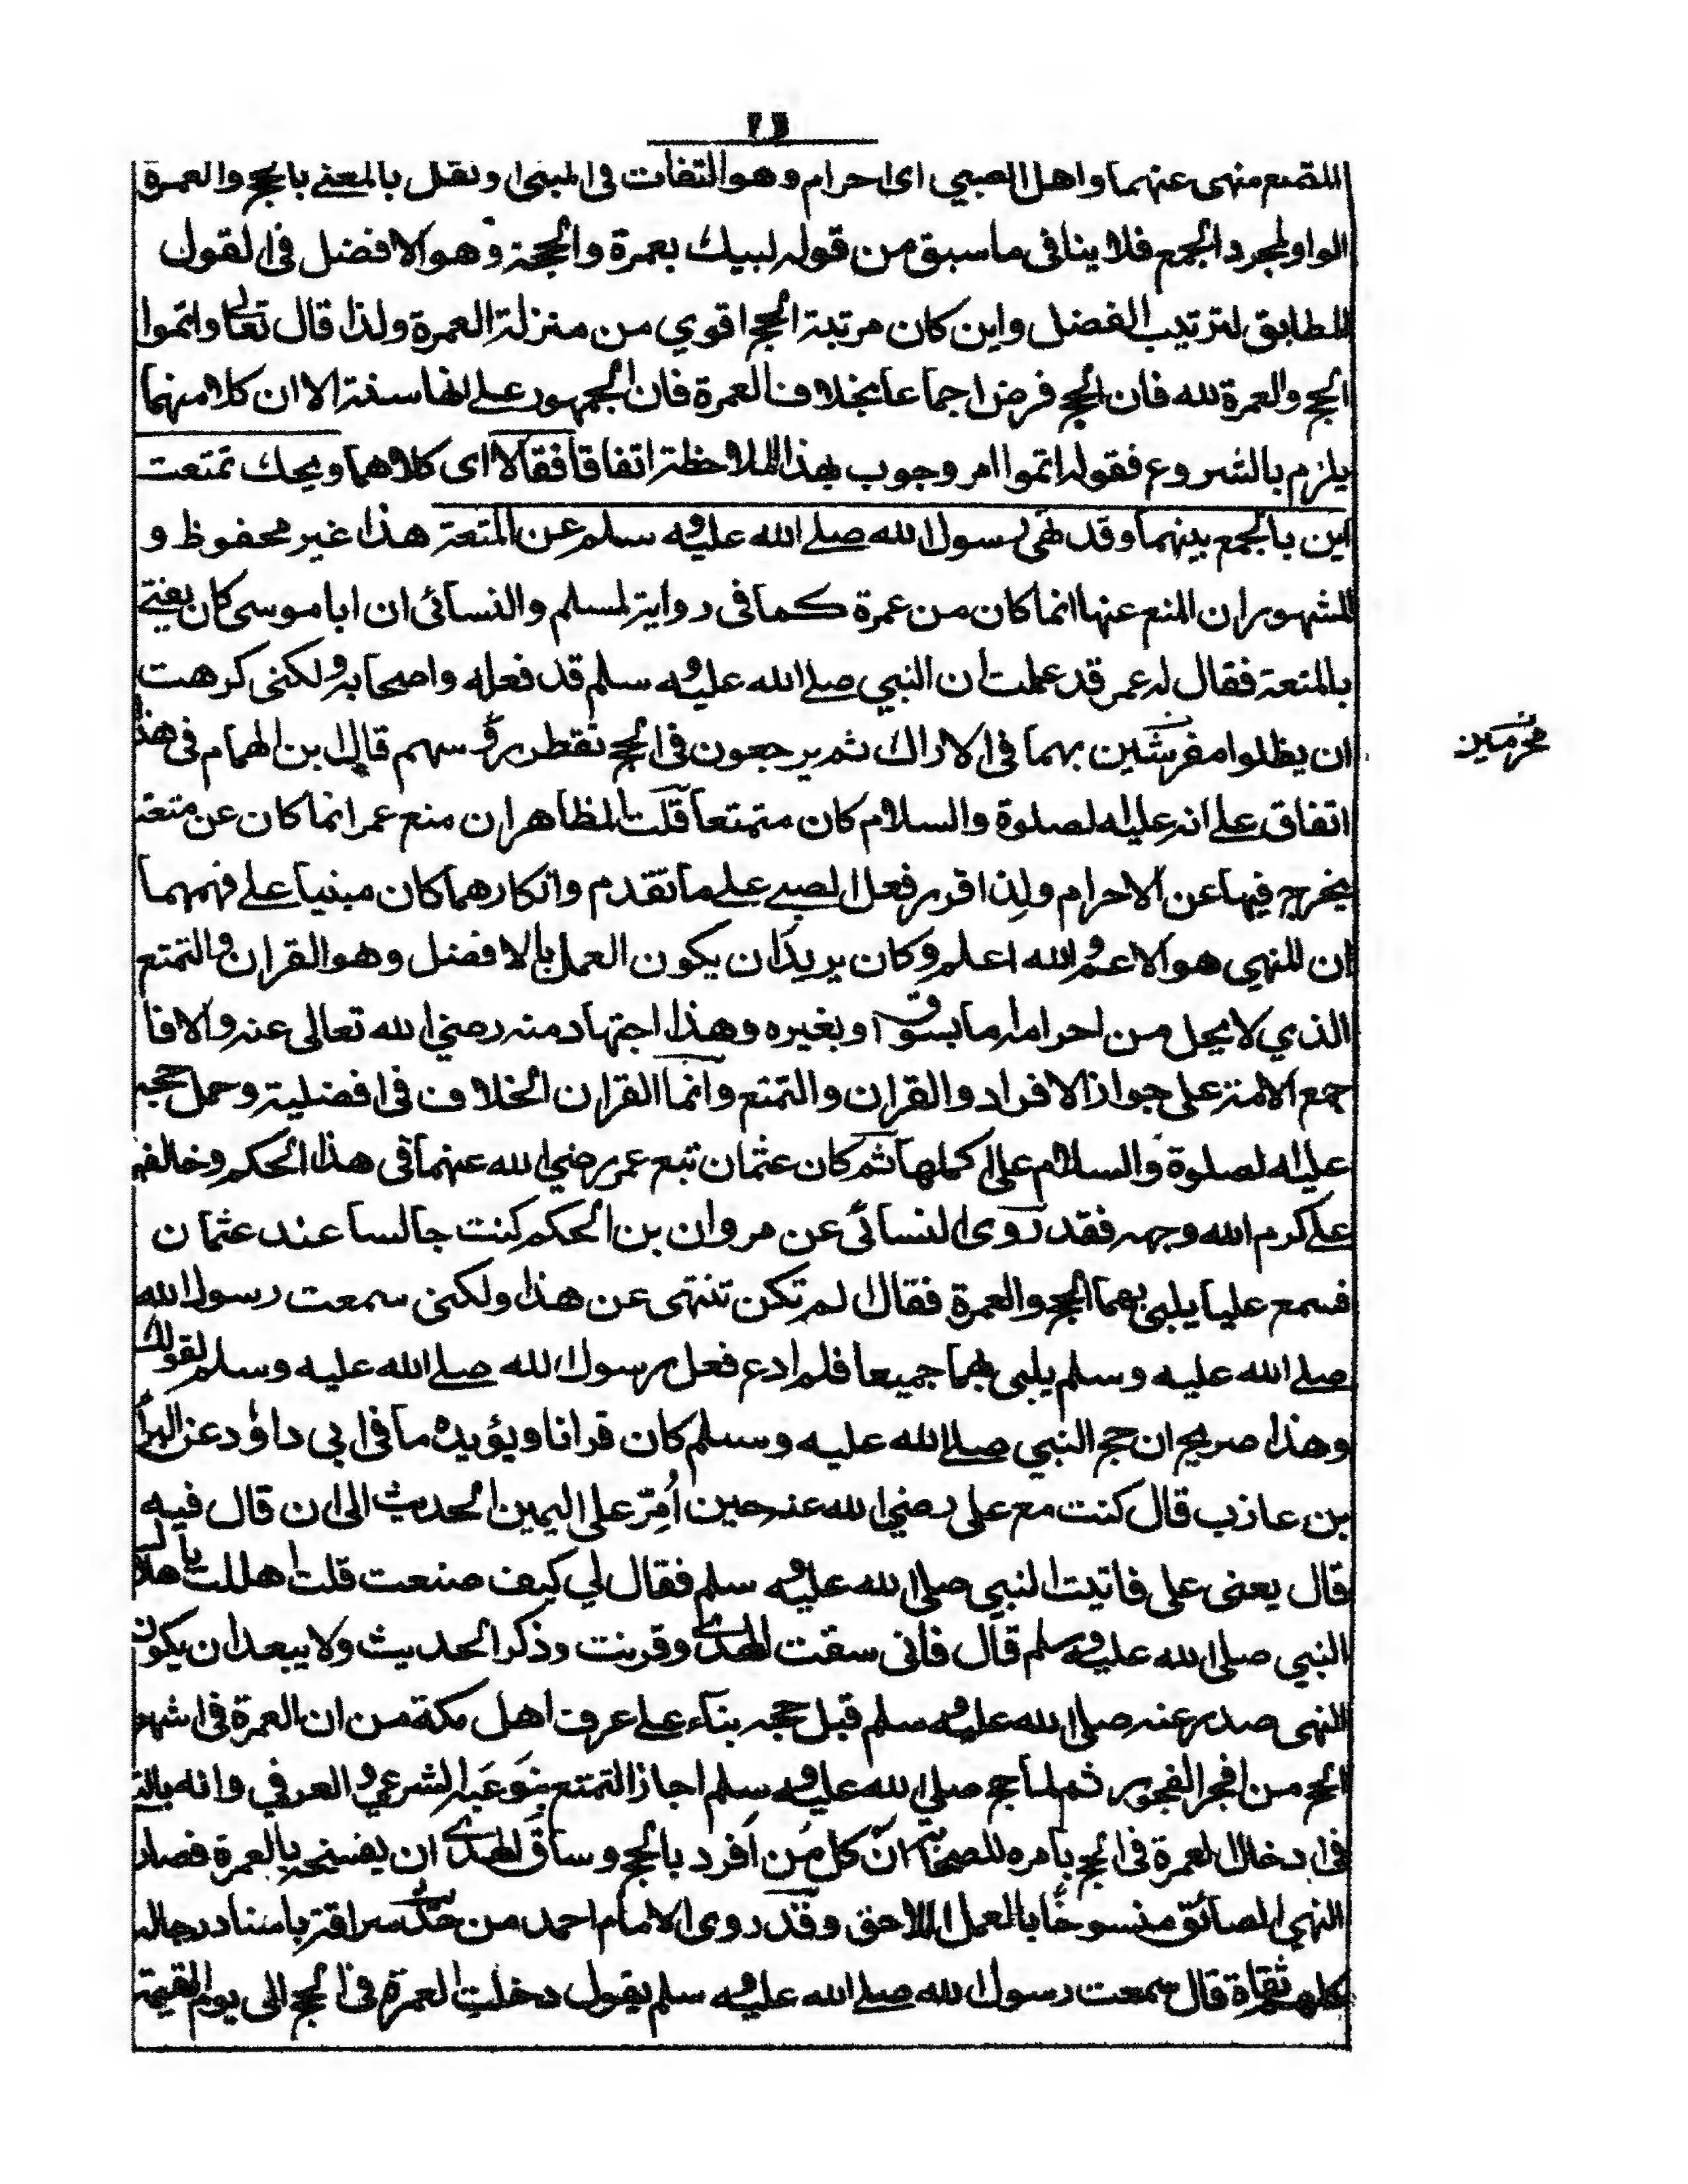 التمتع منهى عنهما واهل الصبي اى احرام وهو التفات فى المبنى او نقل بالمعنے بالحج والعمرة
الواو لمجرد الجمع فلا ينافى ما سبق من قوله لبيك بعمرة والحجة وهو الافضل فى القول
المطابق لترتيب الفضل واين كان مرتبة الحج اقوي من منزلة العمرة ولذا قال تعالى واتموا
الحج والعمرة لله فان الحج فرض اجماعا بخلاف العمرة فان الجمهور علے انها سنة الا ان كلا منهما
يلزم بالشروع فقوله اتموا امر وجوب بهذا الملاحظة اتفاقا فقالا اى كلاهما ويحك تمتعت
اين بالجمع بينهما وقد نهى رسول الله صلے الله عليه وسلم عن المتعة هذا غير محفوظ و
المشهور ان المنع عنها انما كان من عمرة كما فى رواية لمسلم والنسائى ان ابا موسى كان يفتے
بالمتعة فقال له عمر قد علمت ان النبي صلے الله عليه وسلم قد فعله واصحابه ولكنى كرهت
ان يظلوا مفرشين بهما فى الاراك ثم يرجعون فى الحج تقطر رؤسهم قال ابن الهمام فى هذا
محرمين
اتفاق علے انه عليه الصلوة والسلام كان متمتعا قلت المظاهر ان منع عمر انما كان عن متعة
يخرج فيها عن الاحرام ولذا اقر فعل الصبے علے ما تقدم وانكارهما كان مبنيا علے فهمهما
ان المنهى هو الاعم والله اعلم وكان يريد ان يكون العمل بالافضل وهو القران والتمتع
الذي لا يحل من احرامه ما بسوق او بغيره وهذا اجتهاد منه رضي الله تعالى عنه والا فا
جمع الامة على جواز الافراد والقران والتمتع وانما القران الخلاف فى افضلية وحمل حجه
عليه الصلوة والسلام على اكملها ثم كان عثمان تبع عمر رضي الله عنهما فى هذا الحكم وخالفهم
علے كرم الله وجهه فقد روى النسائى عن مروان بن الحكم كنت جالسا عند عثمان
فسمع عليا يلبى بهما الحج والعمرة فقال الم تكن تنتهى عن هذا ولكنى سمعت رسول الله
صلے الله عليه وسلم يلبى بهما جميعا فلم ادع فعل رسول الله صلے الله عليه وسلم لقولك
وهذا صريح ان حج النبي صلے الله عليه وسلم كان قرانا ويؤيده ما فى ابى داؤد عن البرأ
بن عازب قال كنت مع على رضي الله عنه حين اُمِّرَ على اليمين الحديث الى ان قال فيه
قال يعنى على فاتيت النبي صلى الله عليه وسلم فقال لي كيف صنعت قلت اهللت باهلال
النبي صلى الله عليه وسلم قال فانى سقت الهدى وقرنت وذكر الحديث ولا يبعد ان يكون
النهى صدر عنه صلى الله عليه وسلم قبل حجه بناء علے عرف اهل مكة من ان العمرة فى اشهر
الحج من افجر الفجور ثم لما حج صلى الله عليه وسلم اجاز التمتع بنوعيه الشرعي والعرفي وانه بالغ
فى ادخال العمرة فى الحج بامره للصحابة ان كل من افرد بالحج وساق الهدى ان يفسخه بالعمرة فصار
النهي السابق منسوخا بالعمل اللاحق وقد روى الامام احمد من حديث سراقة باسناد رجاله
كلهم ثقاة قال سمعت رسول الله صلے الله عليه وسلم يقول دخلت العمرة فى الحج الى يوم القيمة